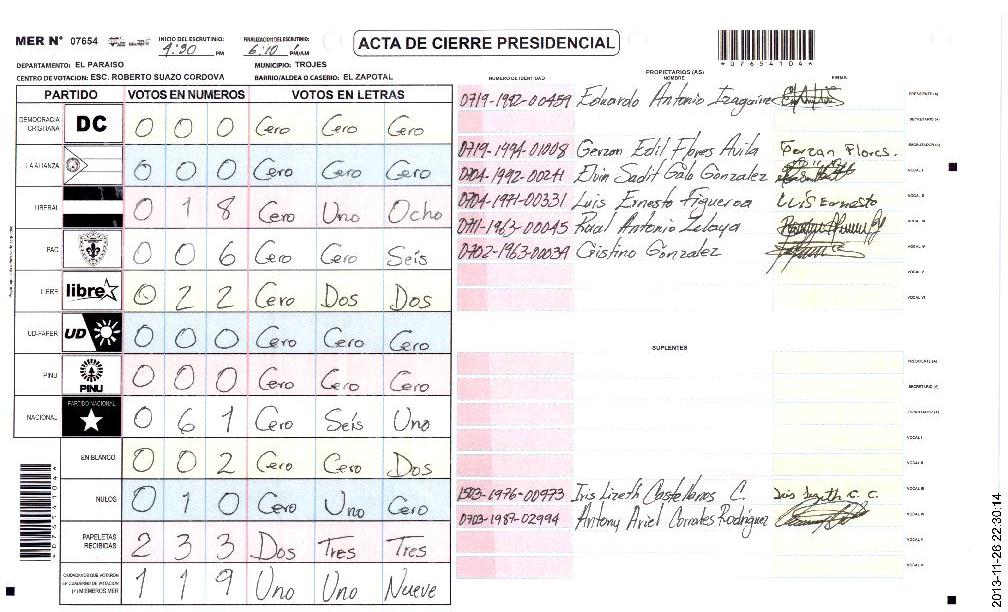 MER Nº 07654 INICIO DEL ESCRUTINIO: 4:30 PM FINALIZACION DEL ESCRUTINIO: 6:10 PM/AM ACTA DE CIERRE PRESIDENCIAL
*07654104*
DEPARTAMENTO: EL PARAISO MUNICIPIO: TROJES
CENTRO DE VOTACION: ESC. ROBERTO SUAZO CORDOVA BARRIO/ALDEA O CASERIO: EL ZAPOTAL
PARTIDO VOTOS EN NUMEROS VOTOS EN LETRAS
DEMOCRACIA CRISTIANA DC 0 0 0 Cero Cero Cero
LA ALIANZA 0 0 0 Cero Cero Cero
LIBERAL 0 1 8 Cero Uno Ocho
PAC 0 0 6 Cero Cero Seis
LIBRE libre 0 2 2 Cero Dos Dos
UD-FAPER UD 0 0 0 Cero Cero Cero
PINU PINU 0 0 0 Cero Cero Cero
NACIONAL PARTIDO NACIONAL 0 6 1 Cero Séis Uno
EN BLANCO 0 0 2 Cero Cero Dos
NULOS 0 1 0 Cero Uno Cero
PAPELETAS RECIBIDAS 2 3 3 Dos Tres Tres
CIUDADANOS QUE VOTARON EN CUADERNO DE VOTACION (+) MIEMBROS MER 1 1 9 Uno Uno Nueve
*07654104*
PROPIETARIOS (AS)
NUMERO DE IDENTIDAD NOMBRE FIRMA
0719-1992-00459 Eduardo Antonio Izaguirre PRESIDENTE (A)
SECRETARIO (A)
0719-1994-01008 Gerzon Edil Flores Avila Gerzan Flores. ESCRUTADOR (A)
0704-1992-00211 Elvin Sadit Galo Gonzalez VOCAL I
0704-1971-00331 Luis Ernesto Figueroa LUÍS Ernesto VOCAL II
0711-1963-00045 Raul Antonio Zelaya VOCAL III
0702-1963-00039 Cristino Gonzalez VOCAL IV
VOCAL V
VOCAL VI
SUPLENTES
PRESIDENTE (A)
SECRETARIO (A)
ESCRUTADOR (A)
VOCAL I
VOCAL II
1523-1976-00973 Iris Lizeth Castellanos C. VOCAL III
0703-1987-02994 Antony Ariel Corrales Rodriguez VOCAL IV
VOCAL V
VOCAL VI
2013-11-26 22:30:14